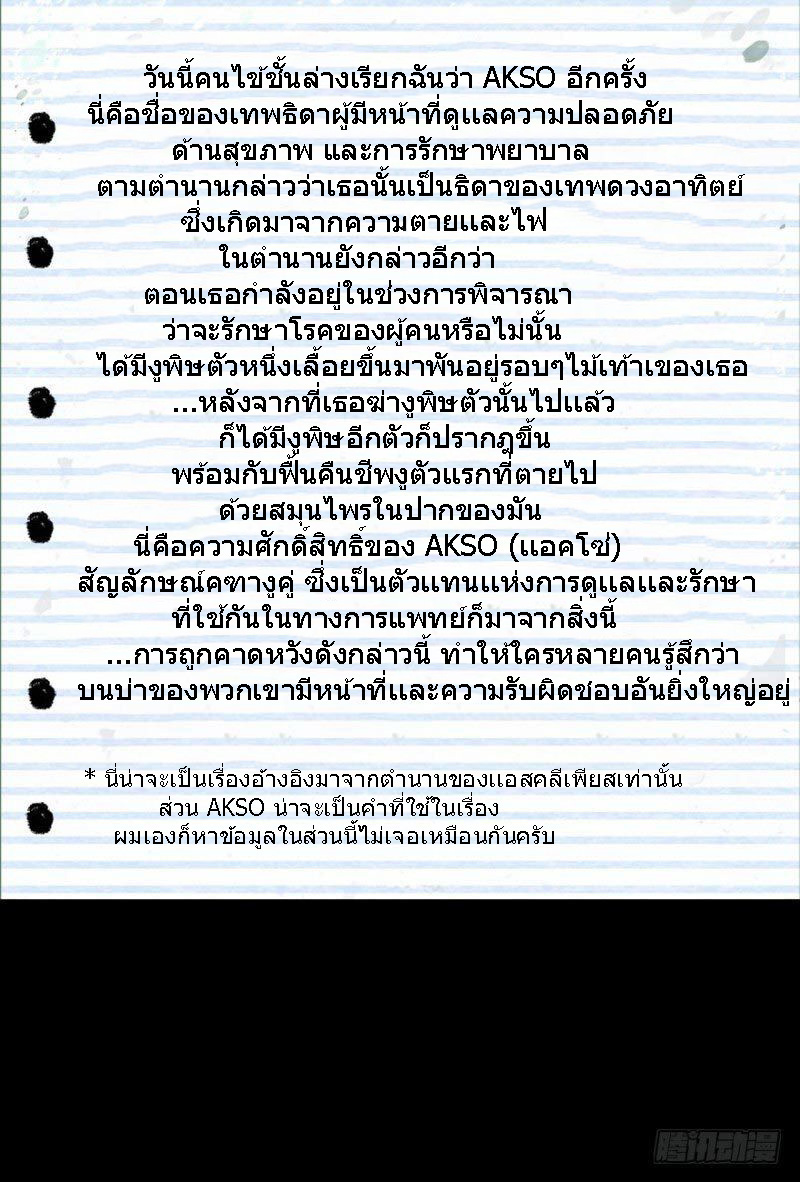 วันนี้คนไข้ชั้นล่างเรียกฉันว่า AKSO อีกครั้ง
นี่คือชื่อของเทพธิดาผู้มีหน้าที่ดูแลความปลอดภัย
ด้านสุขภาพ และการรักษาพยาบาล
ตามตำนานกล่าวว่าเธอนั้นเป็นธิดาของเทพดวงอาทิตย์
ซึ่งเกิดมาจากความตายและไฟ
ในตำนานยังกล่าวอีกว่า
ตอนเธอกำลังอยู่ในช่วงการพิจารณา
ว่าจะรักษาโรคของผู้คนหรือไม่นั้น
ได้มีงูพิษตัวหนึ่งเลื้อยขึ้นมาพันอยู่รอบๆไม้เท้าเของเธอ
...หลังจากที่เธอฆ่างูพิษตัวนั้นไปแล้ว
ก็ได้มีงูพิษอีกตัวก็ปรากฎขึ้น
พร้อมกับฟื้นคืนชีพงูตัวแรกที่ตายไป
ด้วยสมุนไพรในปากของมัน
นี่คือความศักดิ์สิทธิ์ของ AKSO (แอคโซ่)
สัญลักษณ์คฑางูคู่ ซึ่งเป็นตัวแทนแห่งการดูแลและรักษา
ที่ใช้กันในทางการแพทย์ก็มาจากสิ่งนี้
...การถูกคาดหวังดังกล่าวนี้ ทำให้ใครหลายคนรู้สึกว่า
บนบ่าของพวกเขามีหน้าที่และความรับผิดชอบอันยิ่งใหญ่อยู่
* นี่น่าจะเป็นเรื่องอ้างอิงมาจากตำนานของแอสคลีเพียสเท่านั้น
ส่วน AKSO น่าจะเป็นคำที่ใช้ในเรื่อง
ผมเองก็หาข้อมูลในส่วนนี้ไม่เจอเหมือนกันครับ
腾讯动漫